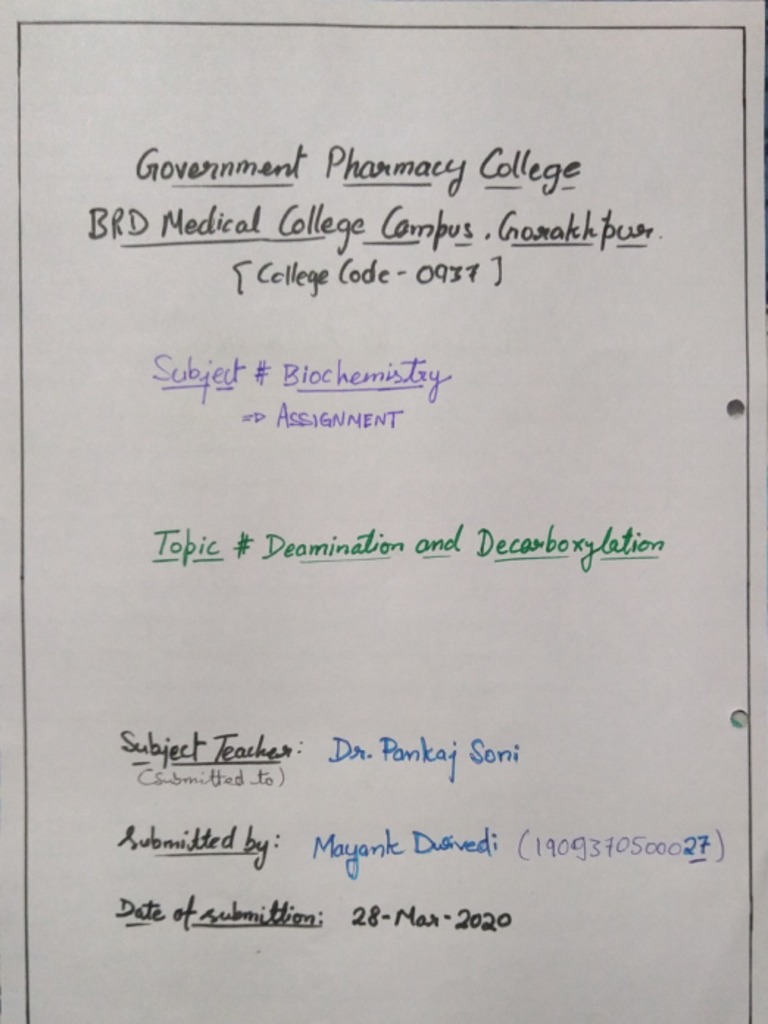 Government Pharmacy College
BRD Medical College Campus, Gorakhpur.
[College Code - 0937]
Subject # Biochemistry
=> ASSIGNMENT
Topic # Deamination and Decarboxylation
Subject Teacher: Dr. Pankaj Soni
(Submitted to)
Submitted by: Mayank Dwivedi (1909370500027)
Date of submittion: 28-Mar-2020